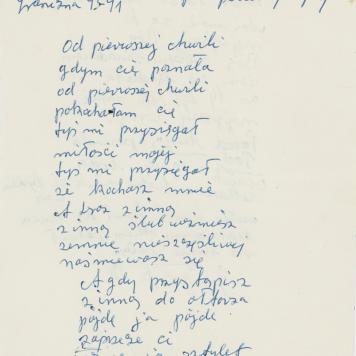 Od pierwszej chwili
gdym cię poznała
od pierwszej chwili
pokochałam cię
tyś mi przysięgał
miłości mojej
tyś mi przysięgał
że kochasz mnie
A teraz z inną
z inną ślub weźmiesz
zemnie nieszczęśliwej
naśmiewasz się
A gdy przystąpisz
z inną do ołtarza
pójdę ja pójdę
ci
sztylet